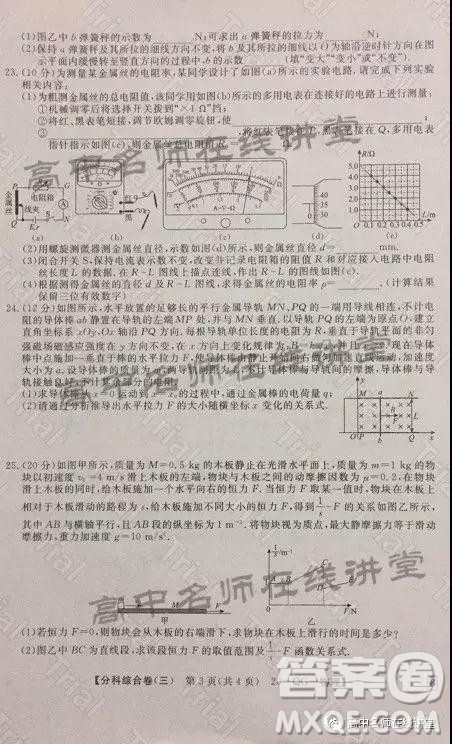 (1)图乙中b弹簧秤的示数为 N;可求出a弹簧秤的拉力为 N;
(2)保持a弹簧秤及其所拉的细线方向不变,将b及其所拉的细线以O为轴沿逆时针方向在图
示平面内缓慢转至竖直方向的过程中,b的示数 (填“变大”“变小”或“不变”).
23.(10分)为测量某金属丝的电阻率,某同学设计了如图(a)所示的实验电路.请完成下列实验
相关内容:
(1)为粗测金属丝的总电阻值,该同学用如图(b)所示的多用电表在连接好的电路上进行测量:
①机械调零后将选择开关拨到“×1 Ω”挡;
②将红、黑表笔短接,调节欧姆调零旋钮,使 ;
将红表笔接在P,黑表笔接在Q,多用电表
指针指示如图(c),则金属丝总电阻值
P
G
金属丝
电阻箱
线夹
Q
S
N
E,r
红
黑
A-V-Ω
R/Ω
5.0
4.0
3.0
2.0
1.0
0 0.1 0.2 0.3 0.4 0.5 L/m
40
35
30
(a) (b) (c) (d) (e)
(2)用螺旋测微器测金属丝直径,示数如图(d)所示,则金属丝直径d= mm.
(3)闭合开关S,保持电流表示数不变,改变并记录电阻箱的阻值R和对应接入电路中电阻
丝长度L的数据,在R-L图线上描点连线,作出R-L的图线如图(e).
(4)根据测得金属丝的直径d及R-L图线,求得金属丝的电阻率ρ= .(计算结果
保留三位有效数字)
24.(12分)如图所示,水平放置的足够长的平行金属导轨MN、PQ的一端用导线相连,不计电
阻的导体棒ab静置在导轨的左端MP处,并与MN垂直.以导轨PQ的左端为原点O,建立
直角坐标系xOy,Ox轴沿PQ方向.每根导轨单位长度的电阻为R.垂直于导轨平面的非匀
强磁场磁感应强度在y方向不变,在x方向上变化规律为
棒中点施加一垂直于棒的水平拉力F,使导体棒由静止开始向右做匀加速直线运动,加速度
大小为a.设导体棒的质量为m,两导轨间距为L.不计导体棒与导轨间的摩擦,导体棒与导
轨接触良好,不计其余部分的电阻.
(1)求导体棒从 的过程中,通过金属棒的电荷量q;
(2)请通过分析推导出水平拉力F的大小随横坐标x变化的关系式.
25.(20分)如图甲所示,质量为M=0.5 kg的木板静止在光滑水平面上,质量为m=1 kg的物
块以初速度v₀=4 m/s滑上木板的左端,物块与木板之间的动摩擦因数为μ=0.2,在物块
滑上木板的同时,给木板施加一个水平向右的恒力F.当恒力F取某一值时,物块在木板上
相对于木板滑动的路程为s,给木板施加不同大小的恒力F,得到1/s-F的关系如图乙所示,
其中AB与横轴平行,且AB段的纵坐标为1 m⁻¹.将物块视为质点,最大静摩擦力等于滑动
摩擦力,重力加速度g=10 m/s².
m
M
F
甲
1/s/m⁻¹
A
B
C
D
O
F/N
乙
(1)若恒力F=0,则物块会从木板的右端滑下,求物块在木板上滑行的时间是多少?
(2)图乙中BC为直线段,求该段恒力F的取值范围及1/s-F函数关系式.
【分科综合卷(三) 第3页(共4页)
高中名师在线讲堂
高中名师在线讲堂
高中名师在线讲堂
高中名师在线讲堂